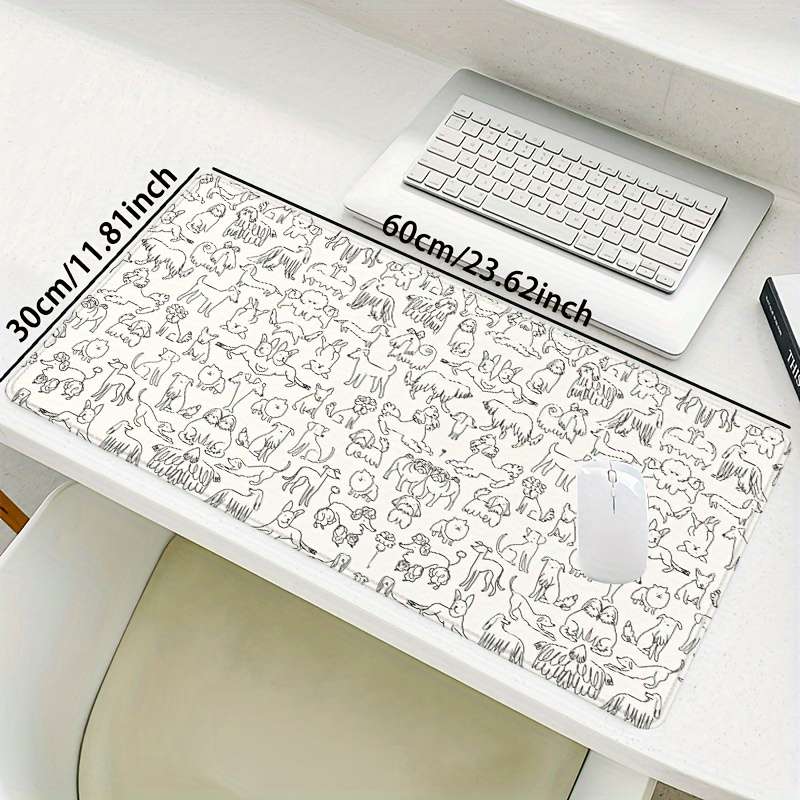 30cm/11.81inch
60cm/23.62inch
THIS